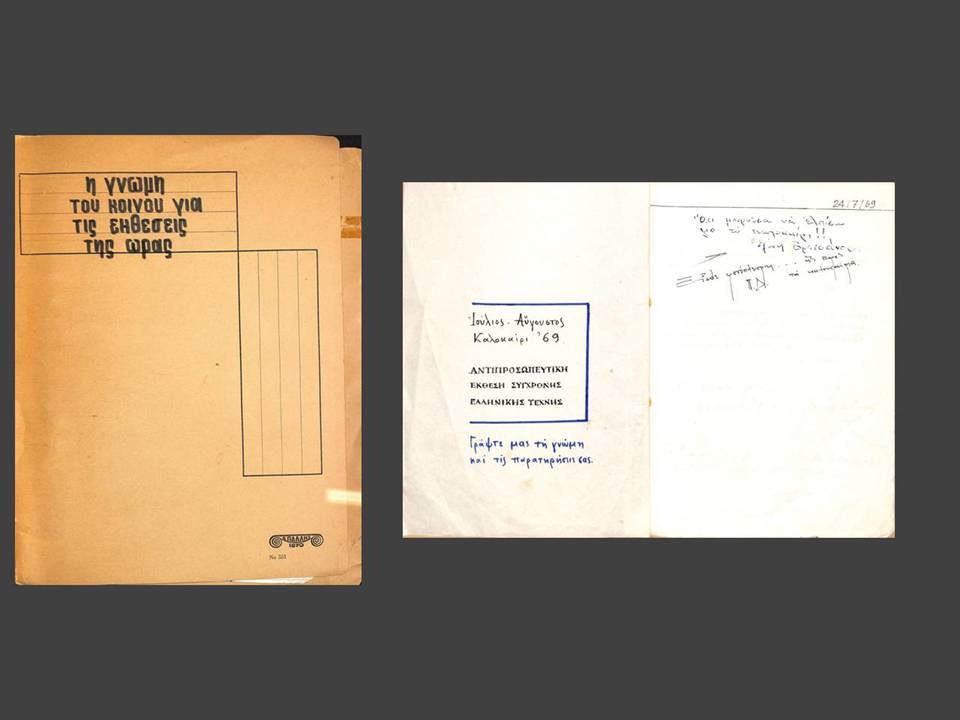 η γνωμη
του κοινου για
τις εκθεσεις
της ωρας
ΠΑΛΛΗΣ
1870
No 551
Ἰούλιος - Αὔγουστος
Καλοκαίρι '69
ΑΝΤΙΠΡΟΣΩΠΕΥΤΙΚΗ
ΕΚΘΕΣΗ ΣΥΓΧΡΟΝΗΣ
ΕΛΛΗΝΙΚΗΣ ΤΕΧΝΗΣ
Γράψτε μας τή γνώμη
καί τίς παρατηρήσεις σας.
24/7/69
Ὅτι μποροῦσα νά ἐλπίσω
γιά τό καλοκαίρι!!